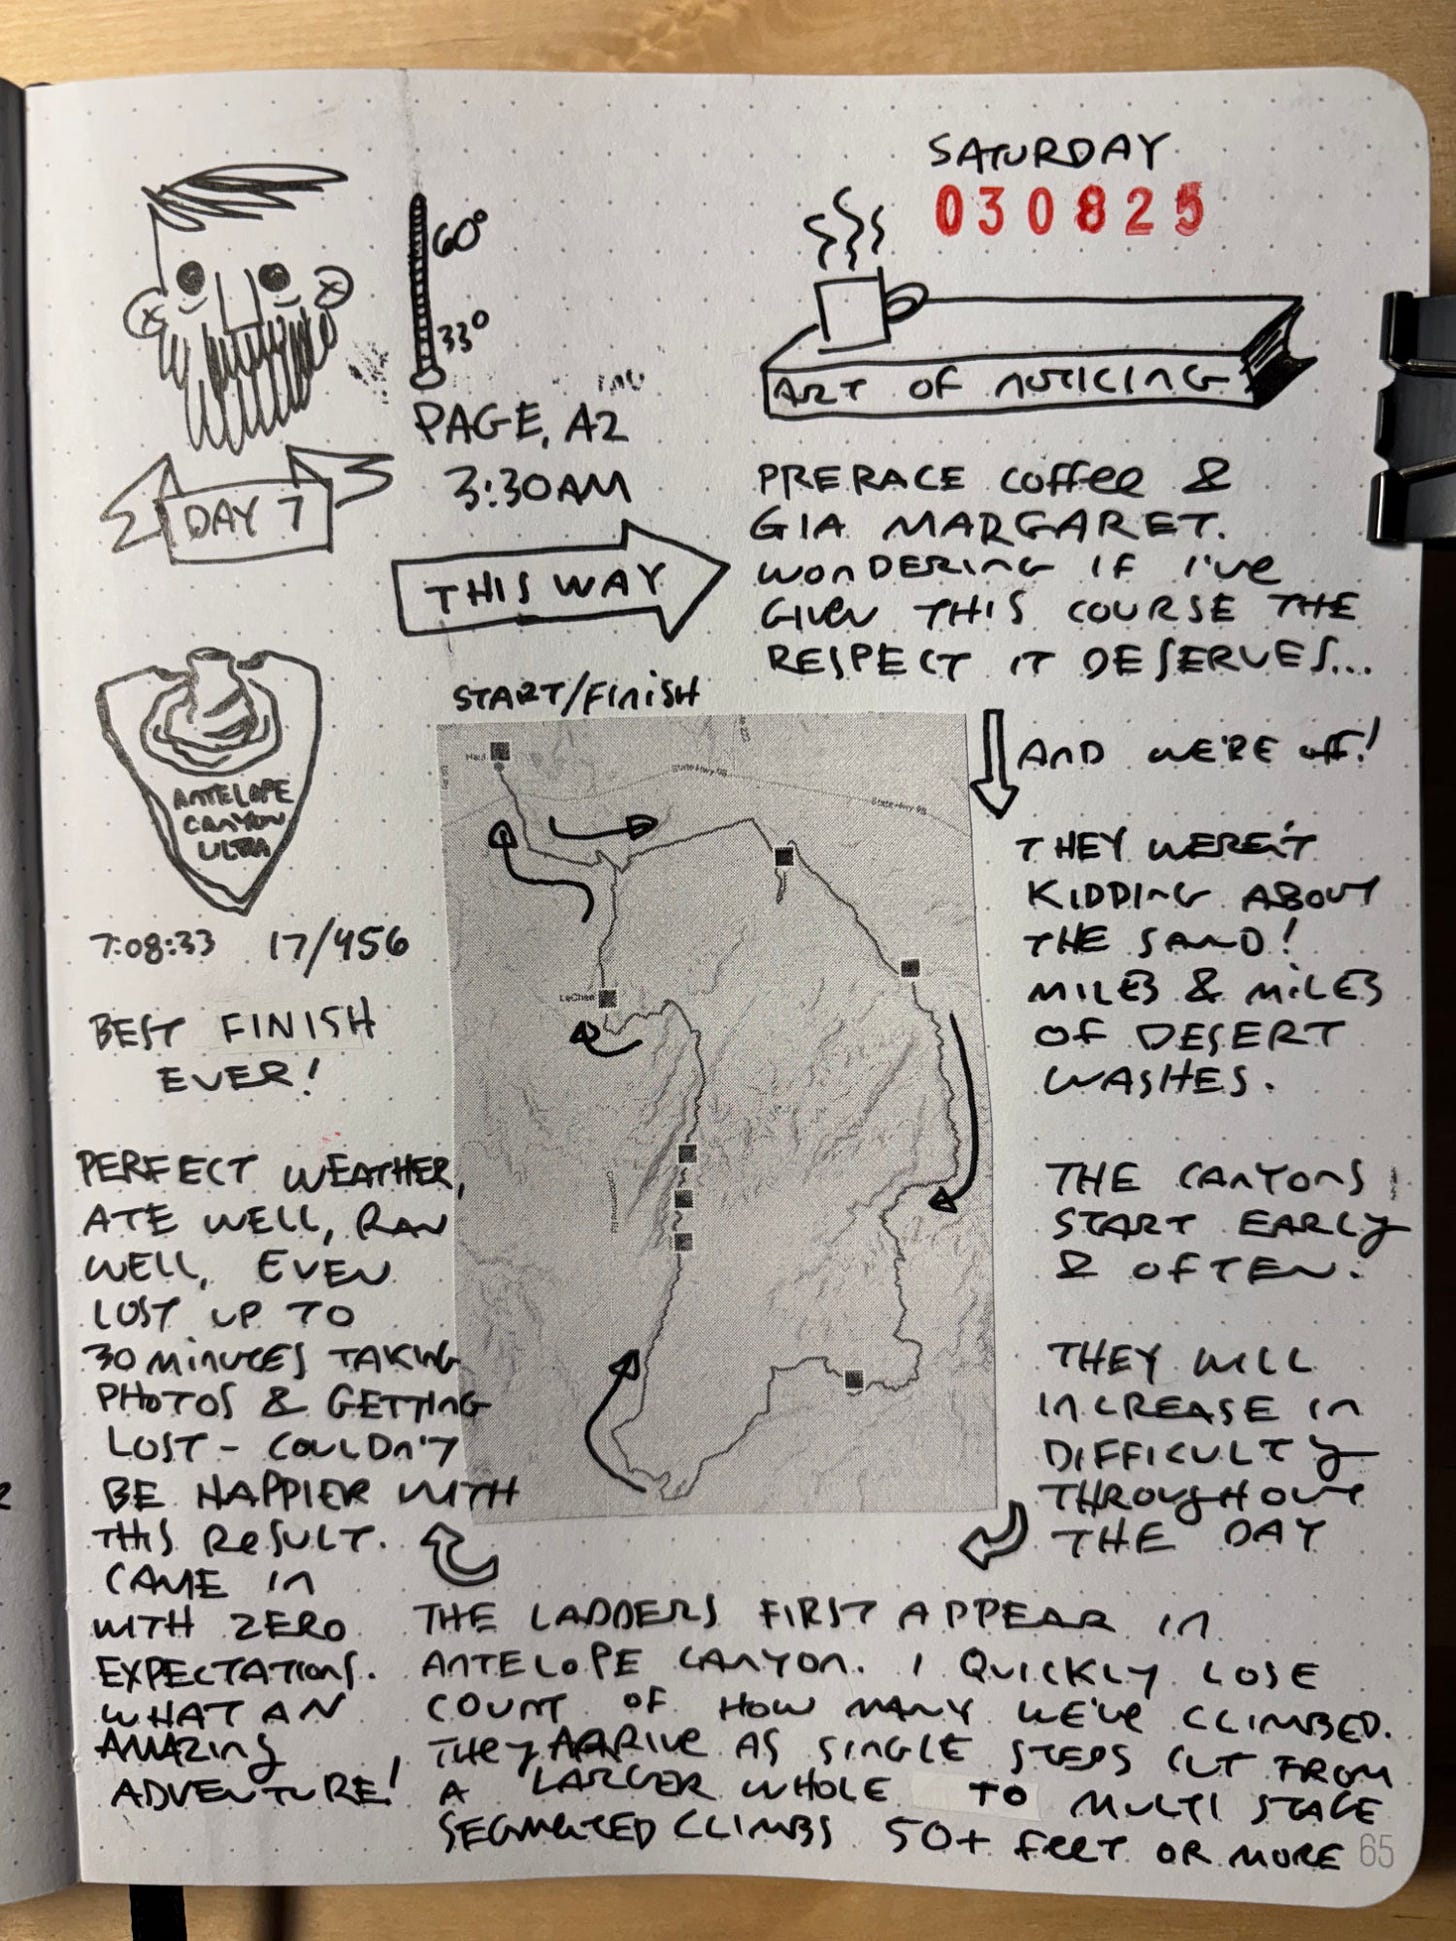 SATURDAY
030825
60°
33°
PAGE, AZ
3:30AM
DAY 7
THIS WAY
ART OF NOTICING
PRERACE COFFEE &
GIA MARGARET.
WONDERING IF I'VE
GIVEN THIS COURSE THE
RESPECT IT DESERVES...
START/FINISH
AND WE'RE OFF!
THEY WEREN'T
KIDDING ABOUT
THE SAND!
MILES & MILES
OF DESERT
WASHES.
THE CANYONS
START EARLY
& OFTEN.
THEY WILL
INCREASE IN
DIFFICULTY
THROUGHOUT
THE DAY
THE LADDERS FIRST APPEAR IN
ANTELOPE CANYON. I QUICKLY LOSE
COUNT OF HOW MANY WE'VE CLIMBED.
THEY ARRIVE AS SINGLE STEPS CUT FROM
A LARGER WHOLE TO MULTI STAGE
SEGMENTED CLIMBS 50+ FEET OR MORE
ANTELOPE
CANYON
ULTRA
7:08:33 17/456
BEST FINISH
EVER!
PERFECT WEATHER,
ATE WELL, RAN
WELL, EVEN
LOST UP TO
30 MINUTES TAKING
PHOTOS & GETTING
LOST - COULDN'T
BE HAPPIER WITH
THIS RESULT.
CAME IN
WITH ZERO
EXPECTATIONS.
WHAT AN
AMAZING
ADVENTURE!
65